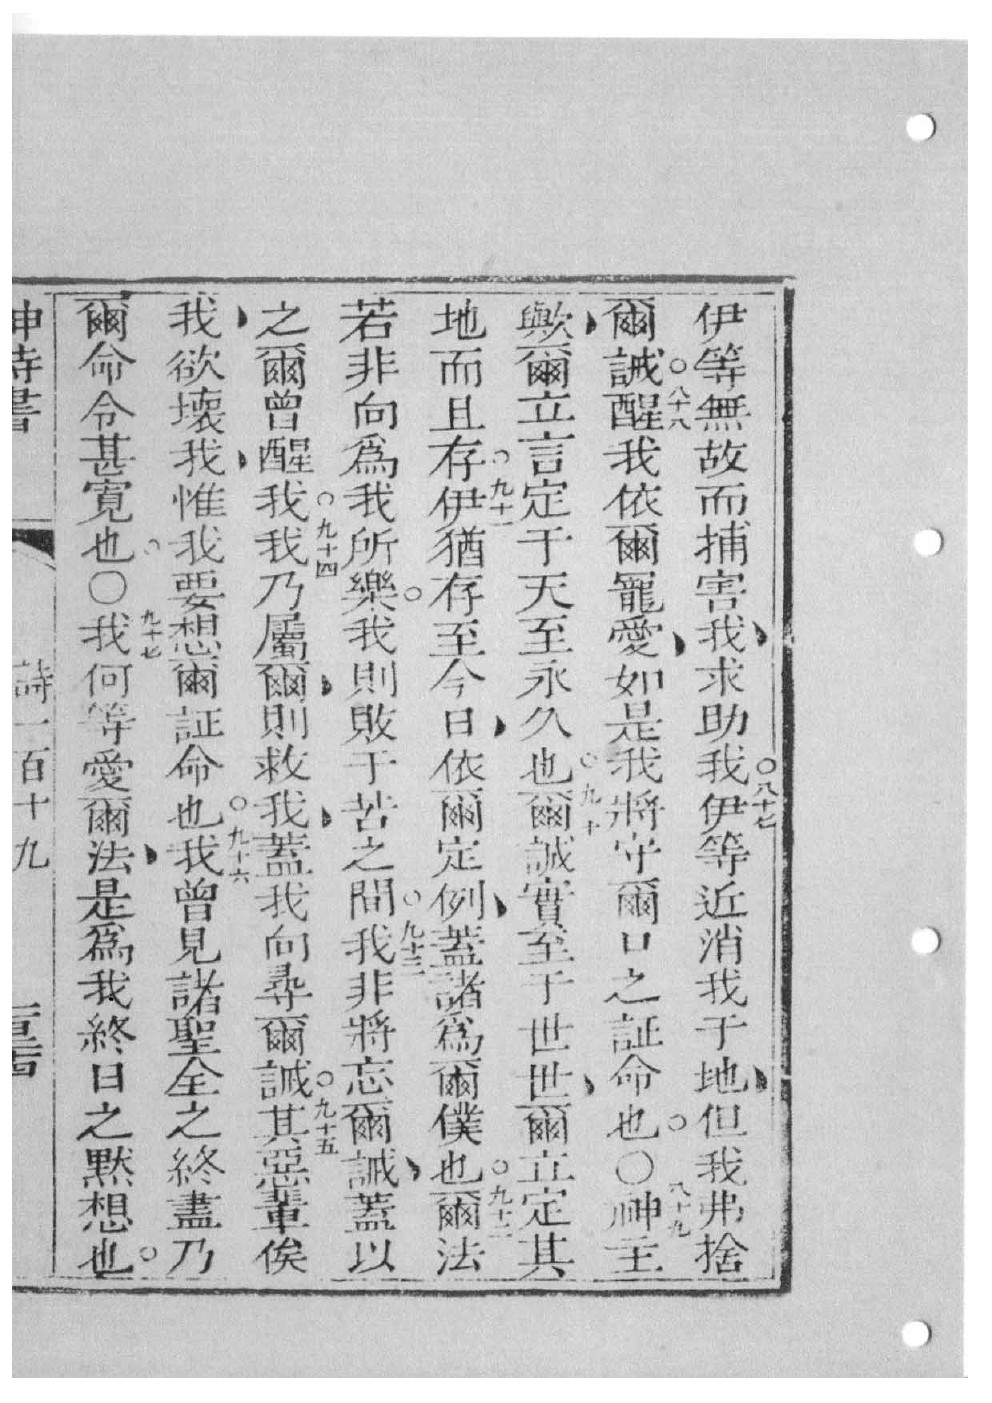 伊等無故而捕害我求助我○八十七伊等近消我于地但我弗捨
爾誡○八十八醒我依爾寵愛如是我將守爾口之証命也○八十九神主
歟爾立言定于天至永久也○九十爾誠實至于世世爾立定其
地而且存○九十一伊猶存至今日依爾定例蓋諸為爾僕也○九十二爾法
若非向為我所樂我則敗于苦之間○九十三我非將忘爾誡蓋以
之爾曾醒我○九十四我乃屬爾則救我蓋我向尋爾誡○九十五其惡輩俟
我欲壞我惟我要想爾証命也○九十六我曾見諸聖全之終盡乃
爾命令甚寬也○九十七我何等愛爾法是為我終日之默想也
詩一百十九